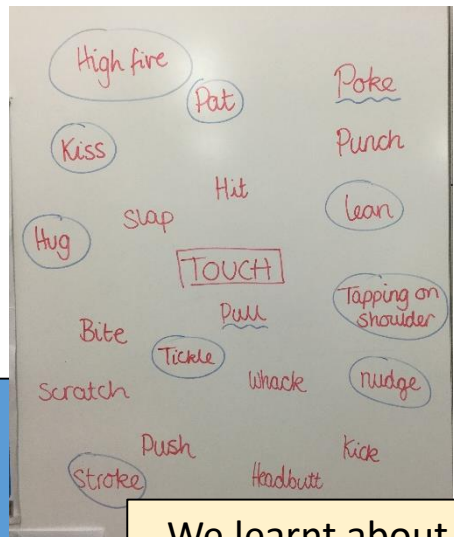 High five
Pat
Poke
Kiss
Punch
Hit
Slap
lean
Hug
TOUCH
Tapping on
shoulder
Pull
Bite
Tickle
Whack
nudge
Scratch
Push
Kick
Stroke
Headbutt
We learnt about